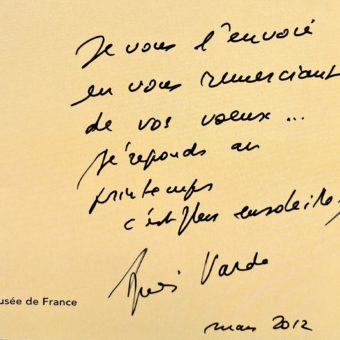 Je vous l'envoie
en vous remerciant
de vos voeux...
Je réponds au
printemps
c'est plus ensoleillé
Agnès Varda
usée de France
mars 2012